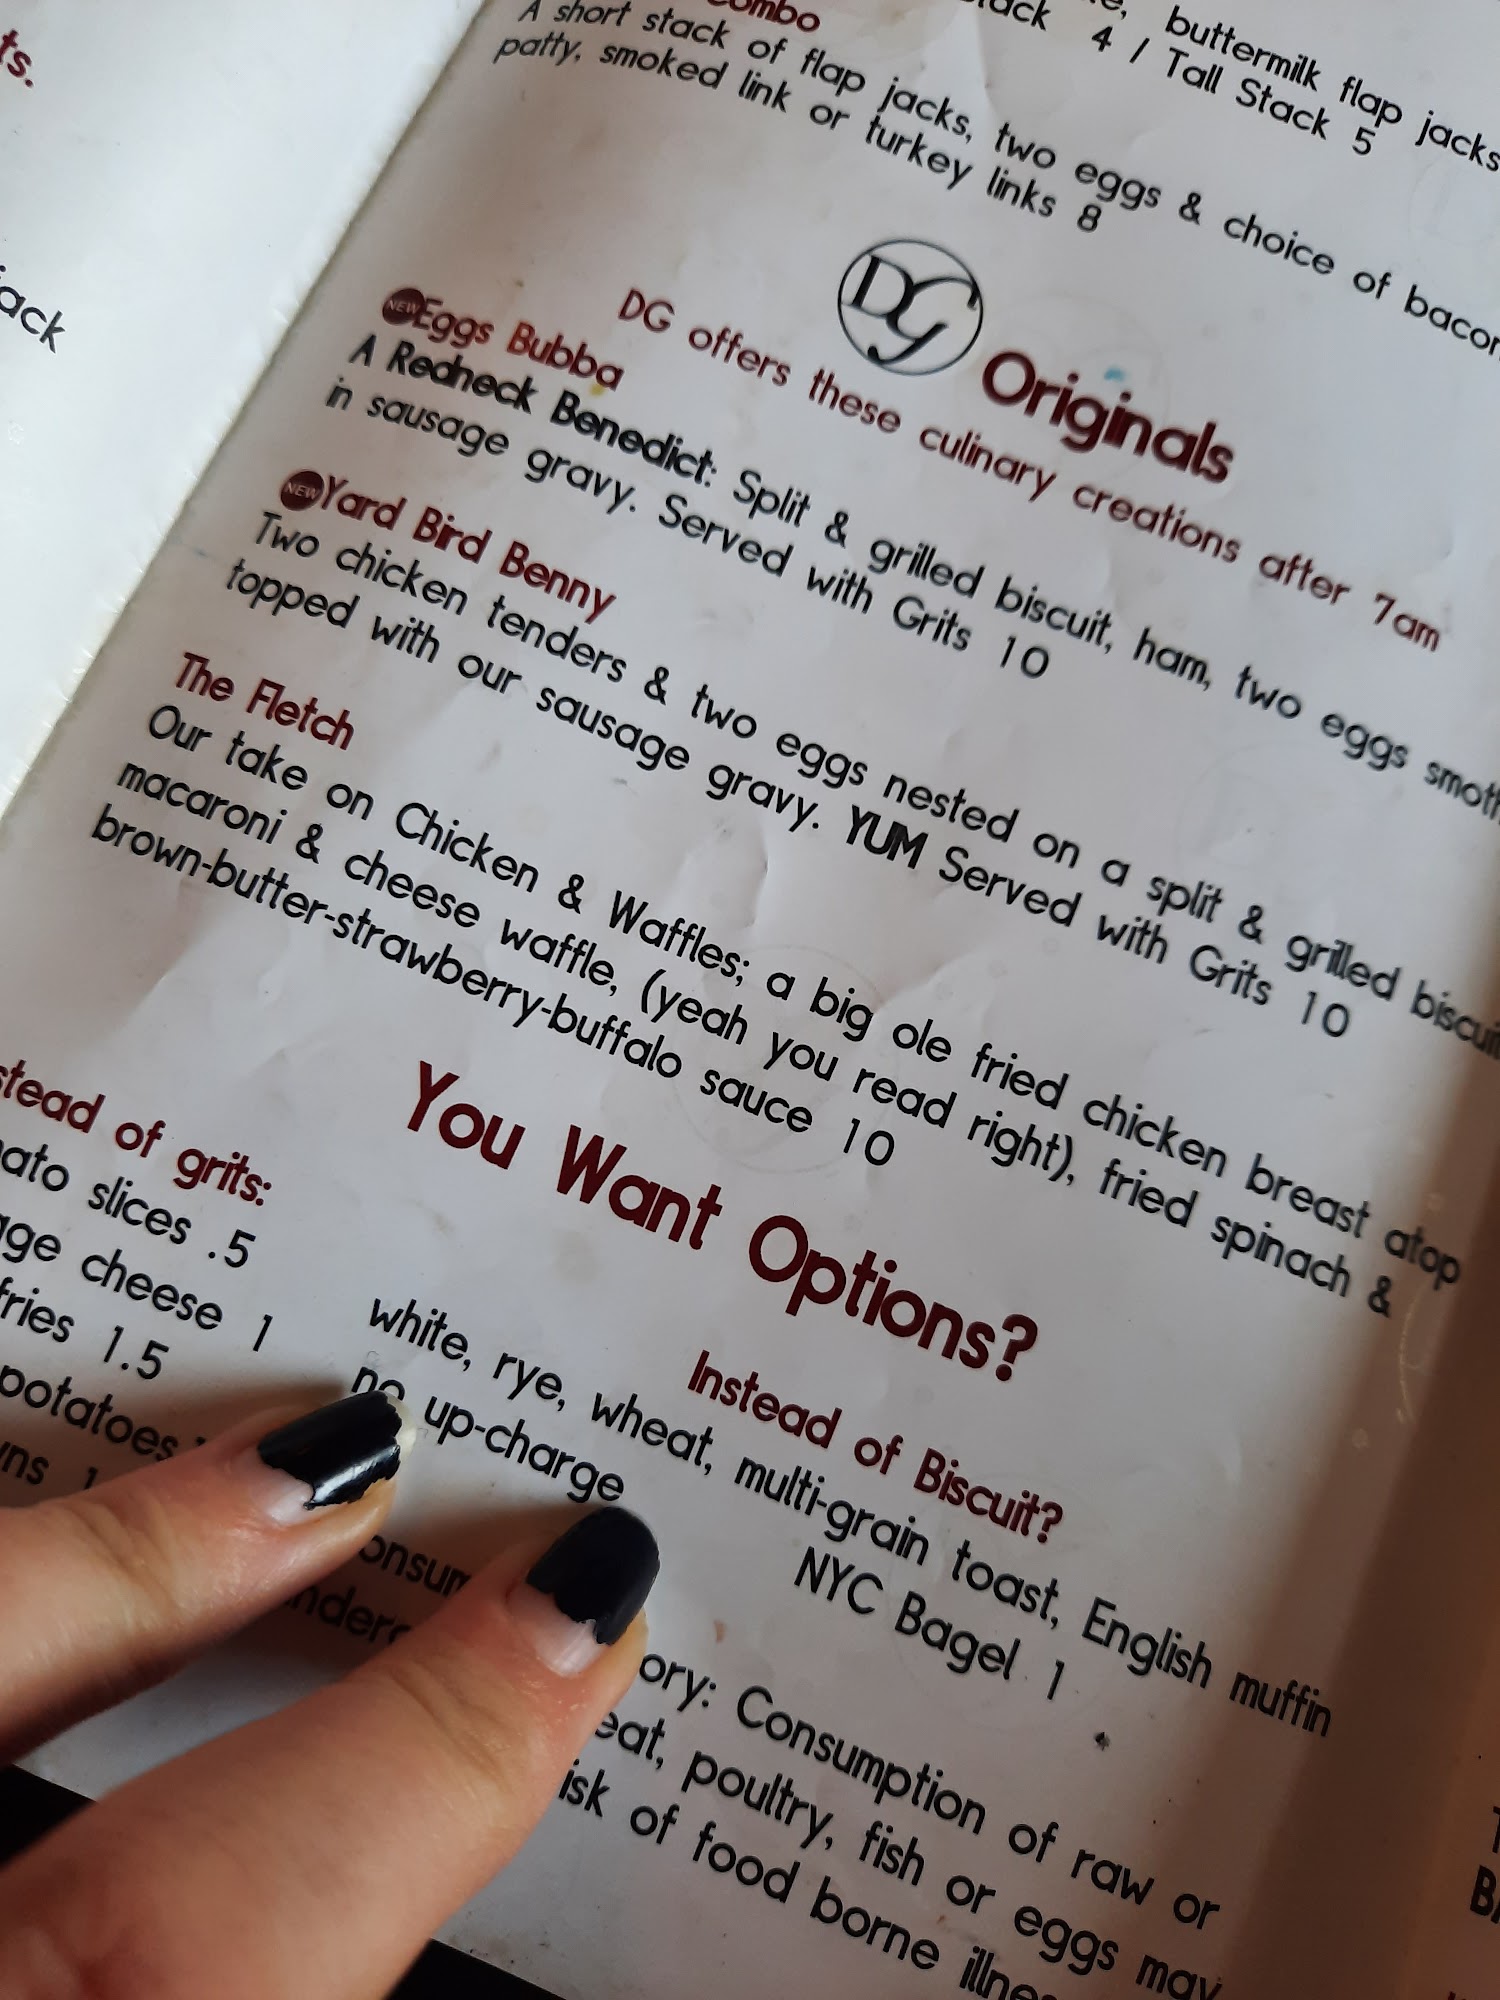 ts.
ack
buttermilk flap jacks
4 / Tall Stack 5
A short stack of flap jacks, two eggs & choice of bacon
patty, smoked link or turkey links 8
DG Originals
DG offers these culinary creations after 7am
NEW Eggs Bubba
A Redneck Benedict: Split & grilled biscuit, ham, two eggs smoth
in sausage gravy. Served with Grits 10
NEW Yard Bird Benny
Two chicken tenders & two eggs nested on a split & grilled biscuit
topped with our sausage gravy. YUM Served with Grits 10
The Fletch
Our take on Chicken & Waffles; a big ole fried chicken breast atop
macaroni & cheese waffle, (yeah you read right), fried spinach &
brown-butter-strawberry-buffalo sauce 10
You Want Options?
stead of grits:
ato slices .5
age cheese 1
fries 1.5
potatoes
wns 1
Instead of Biscuit?
white, rye, wheat, multi-grain toast, English muffin
no up-charge
NYC Bagel 1
onsum
nderc
ory: Consumption of raw or
eat, poultry, fish or eggs may
isk of food borne illnes